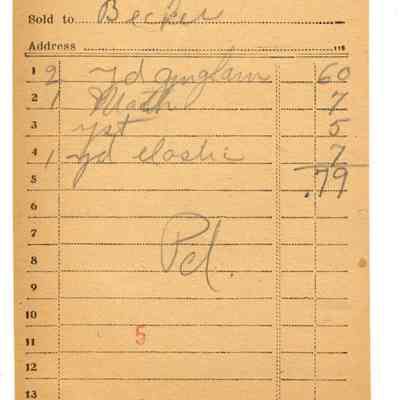 Sold to Becker
Address
1 2 yd gingham 60
2 1 Math 7
3 yst 5
4 1 yd elastic 7
5 .79
6
7
8 Pd.
9
10
11 5
12
13